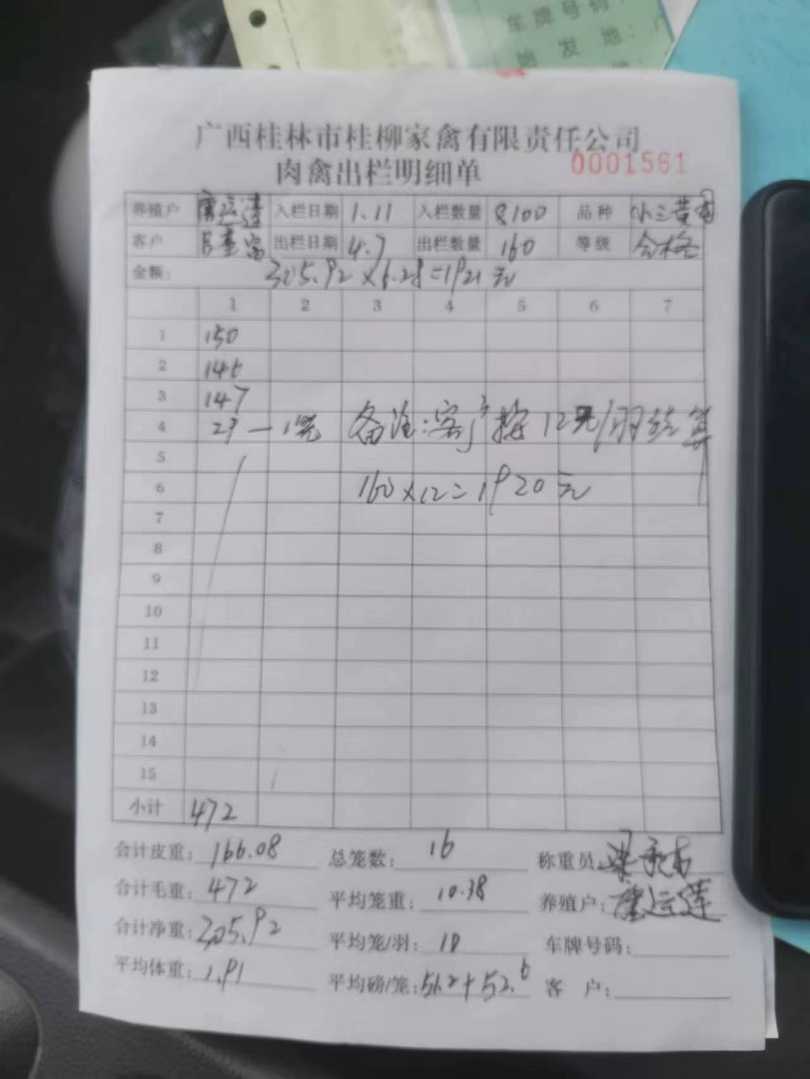 车牌号码:
始发地:
广西桂林市桂柳家禽有限责任公司
肉禽出栏明细单 0001561
养殖户 唐运莲 入栏日期 1.11 入栏数量 8100 品种 小三黄
客户 出栏日期 4.7 出栏数量 160 等级 合格
金额: 305.92×6.28=1921元
1 2 3 4 5 6 7
1 150
2 146
3 147
4 29-1笼 备注:客户按12元/羽结算
5
6 160×12=1920元
7
8
9
10
11
12
13
14
15
小计 472
合计皮重: 166.08 总笼数: 16 称重员:
合计毛重: 472 平均笼重: 10.38 养殖户: 唐运莲
合计净重: 305.92 平均笼/羽: 10 车牌号码:
平均体重: 1.91 平均磅/笼: 客户: